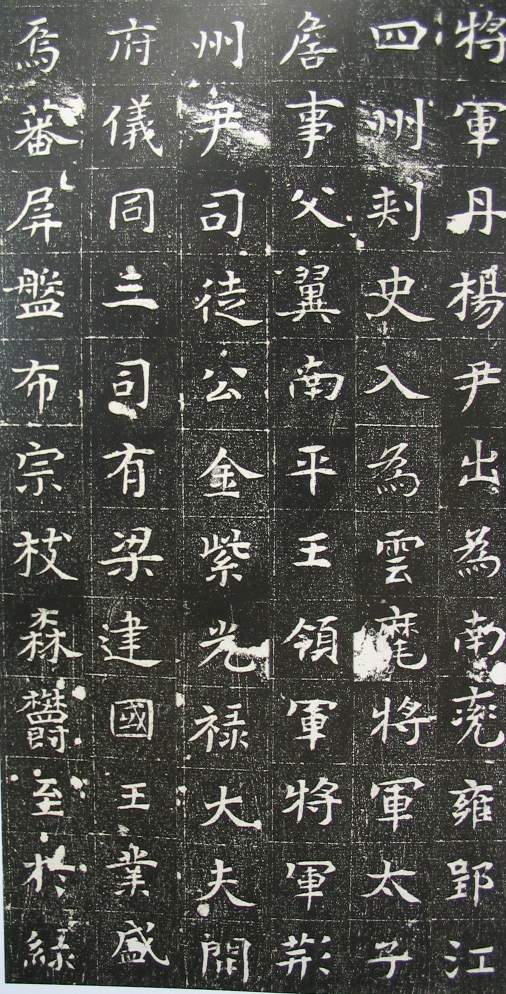 將軍丹楊尹出為南兖雍郢江
四州刾史入為雲麾將軍太子
詹事父翼南平王領軍將軍荊
州尹司徒公金紫光禄大夫開
府儀同三司有梁建國王業盛
焉蕃屏盤布宗枝森欝至於緑